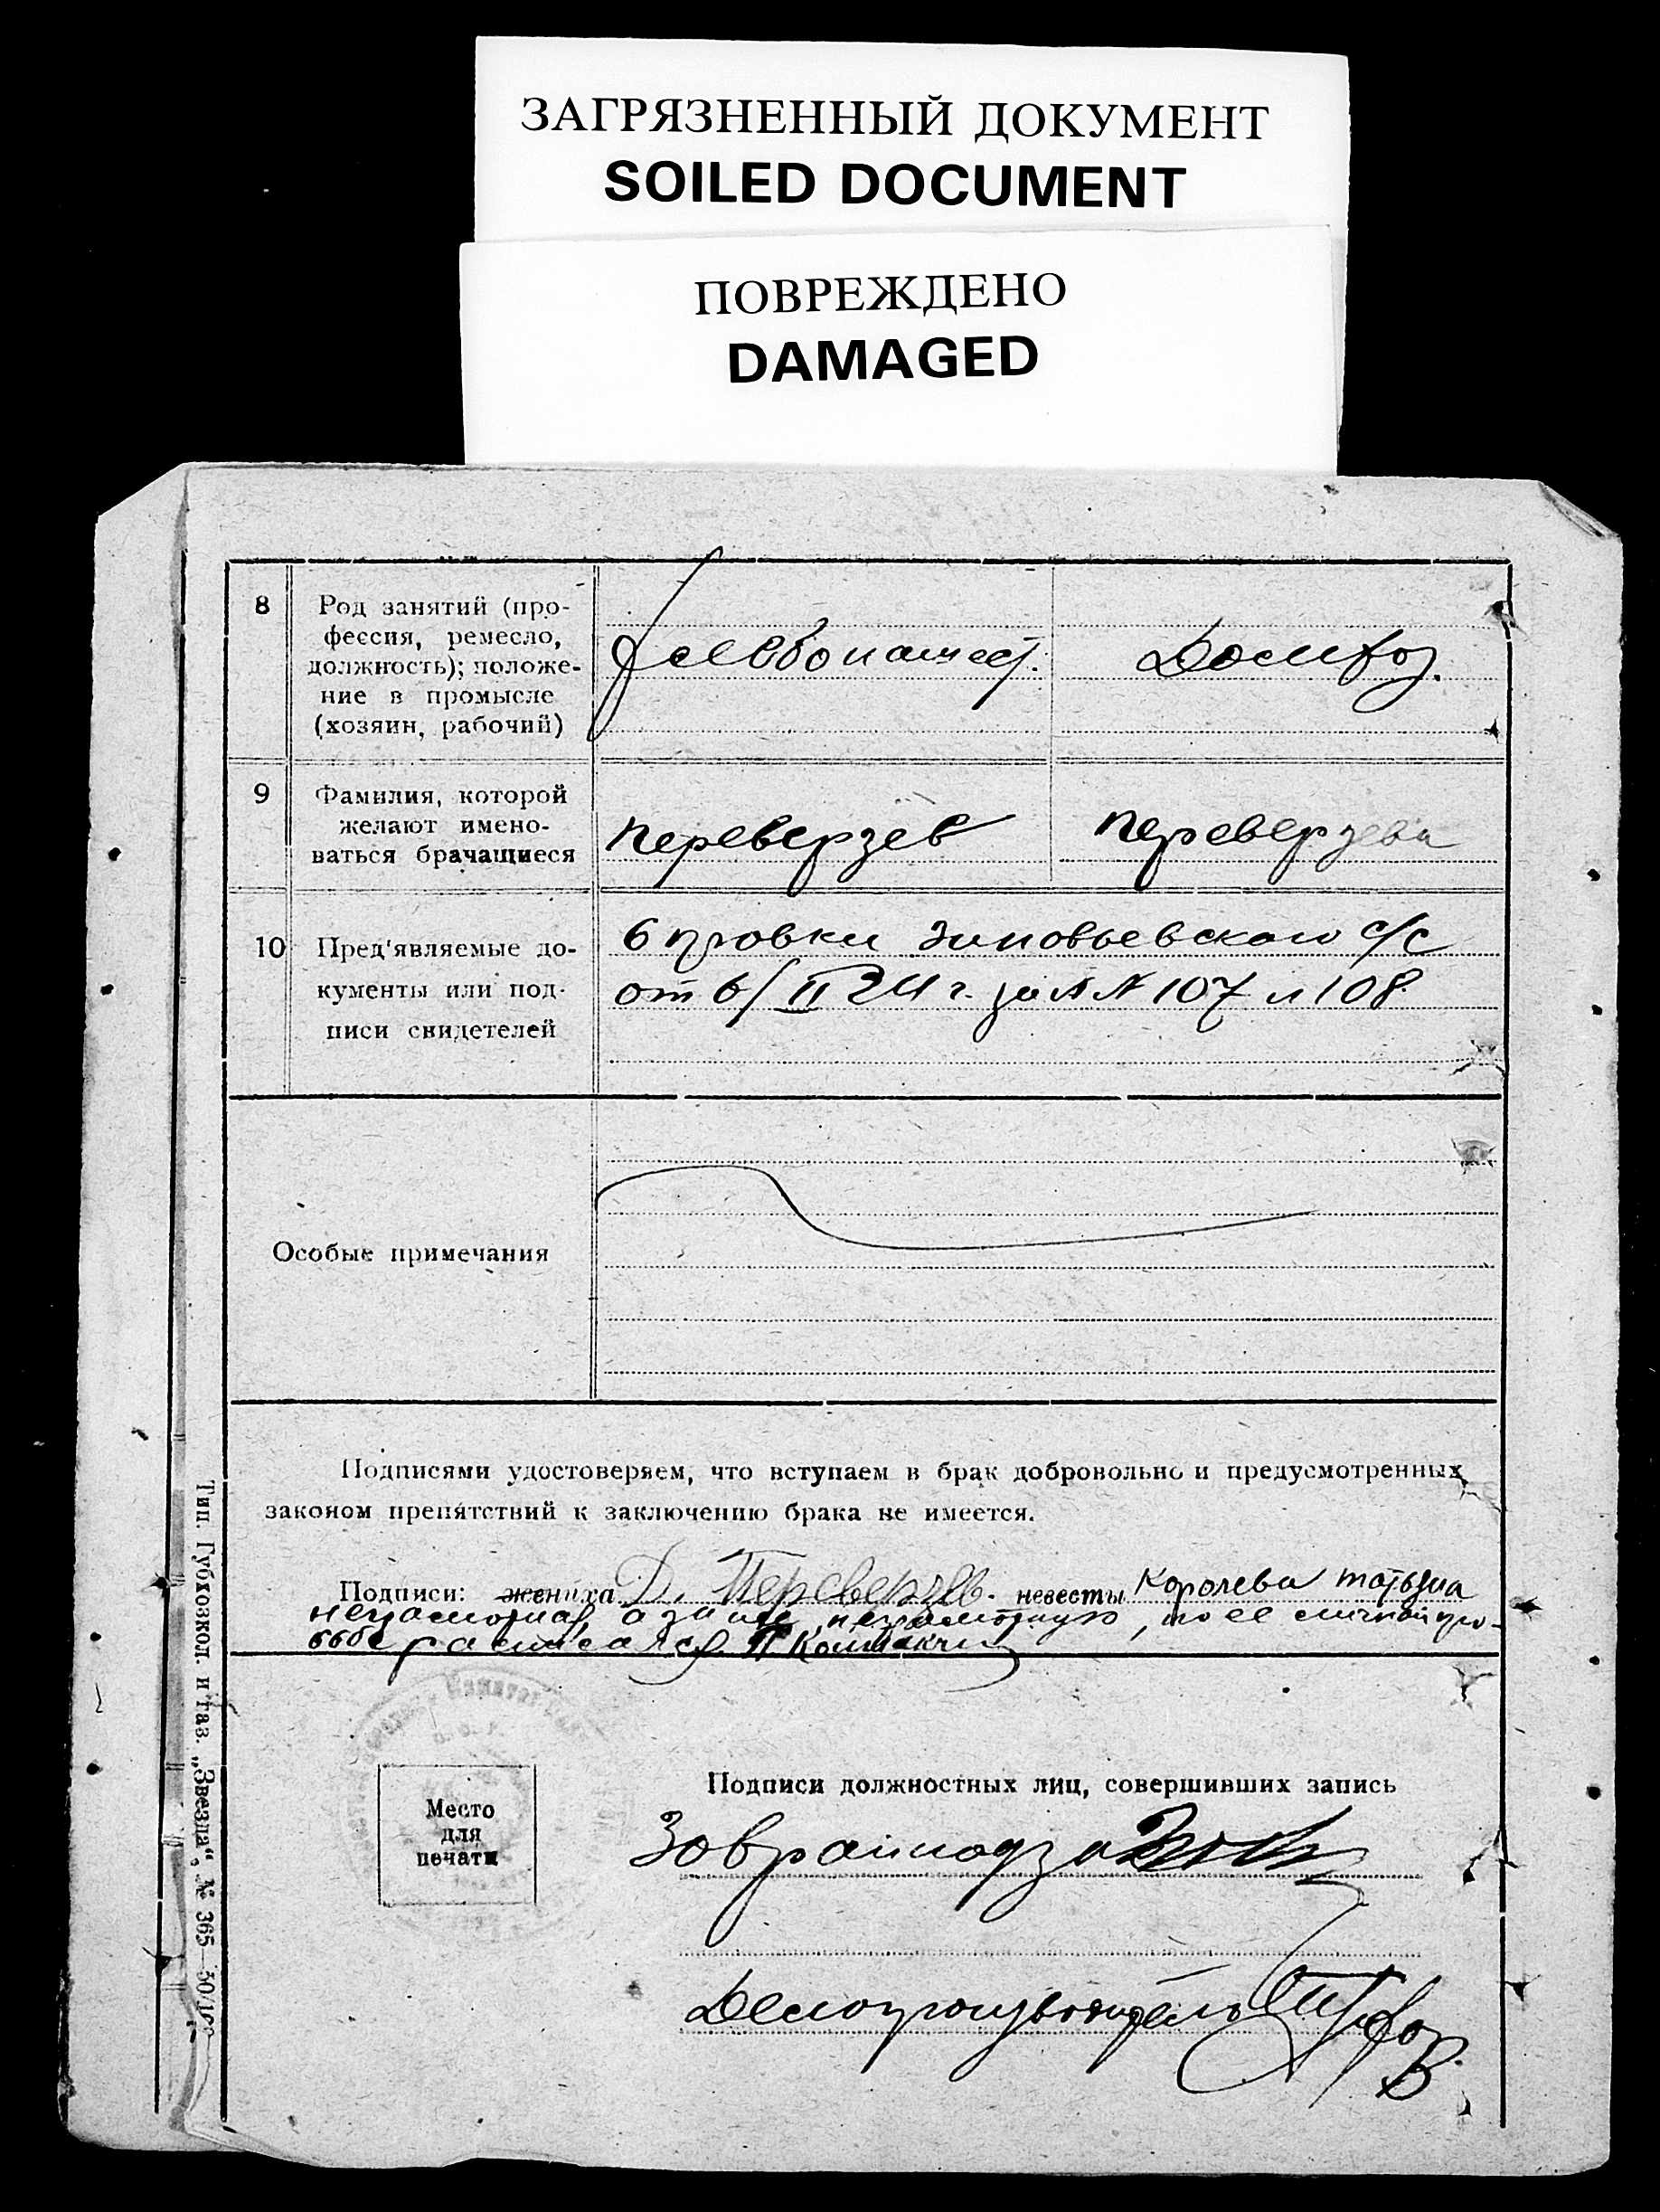 ЗАГРЯЗНЕННЫЙ ДОКУМЕНТ
SOILED DOCUMENT
ПОВРЕЖДЕНО
DAMAGED
8
Род занятий (про-
фессия, ремесло,
должность); положе-
ние в промысле
(хозяин, рабочий)
Хлебопашест.
Домхоз.
9
Фамилия, которой
желают имено-
ваться брачащиеся
Переверзев
Переверзева
10
Пред'являемые до-
кументы или под-
писи свидетелей
Зиновьевского с/с
от 6/II 24 г. за №№ 107 и 108.
Особые примечания
Подписями удостоверяем, что вступаем в брак добровольно и предусмотренных
законом препятствий к заключению брака не имеется.
Подписи: жениха Д. Переверзев. невесты Королева Татьяна
неграмотная, а за нее, неграмотную, по ее личной про-
сьбе расписался П.
Место
для
печати
Подписи должностных лиц, совершивших запись
Заврайподзагс
Делопроизводитель
Тип. Губкозкол. и газ. „Звезда“, № 365—50/100